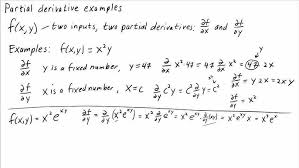 Partial derivative examples
f(x,y) — two inputs, two partial derivatives: ∂f/∂x and ∂f/∂y
Examples: f(x,y) = x²y
∂f/∂x y is a fixed number, y=47 ∂/∂x x²·47 = 47 ∂/∂x x² = 47·2x y
∂f/∂x = y 2x = 2xy
∂f/∂y x is a fixed number, x=c ∂/∂y c²y = c² ∂/∂y y = c²
∂f/∂y = x²
f(x,y) = x²e^{xy} ∂f/∂y = ∂/∂y (x²e^{xy}) = x² ∂/∂y e^{xy} = x² e^{xy} ∂/∂y (xy) = x² e^{xy} x = x³e^{xy}